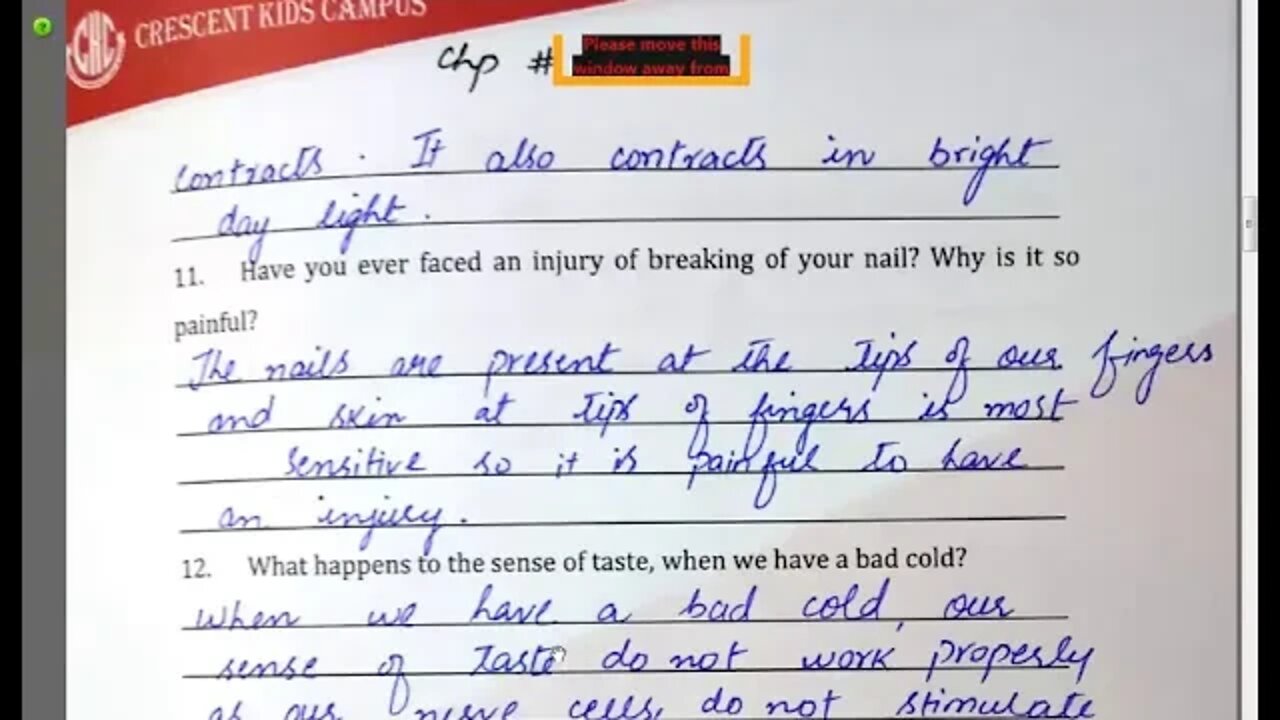 CHC CRESCENT KIDS CAMPUS
Chp #
Please move this
window away from
contracts. It also contracts in bright
day light.
11. Have you ever faced an injury of breaking of your nail? Why is it so
painful?
The nails are present at the tips of our fingers
and skin at tips of fingers is most
sensitive so it is painful to have
an injury.
12. What happens to the sense of taste, when we have a bad cold?
When we have a bad cold, our
sense of taste do not work properly
as our nerve cells, do not stimulate